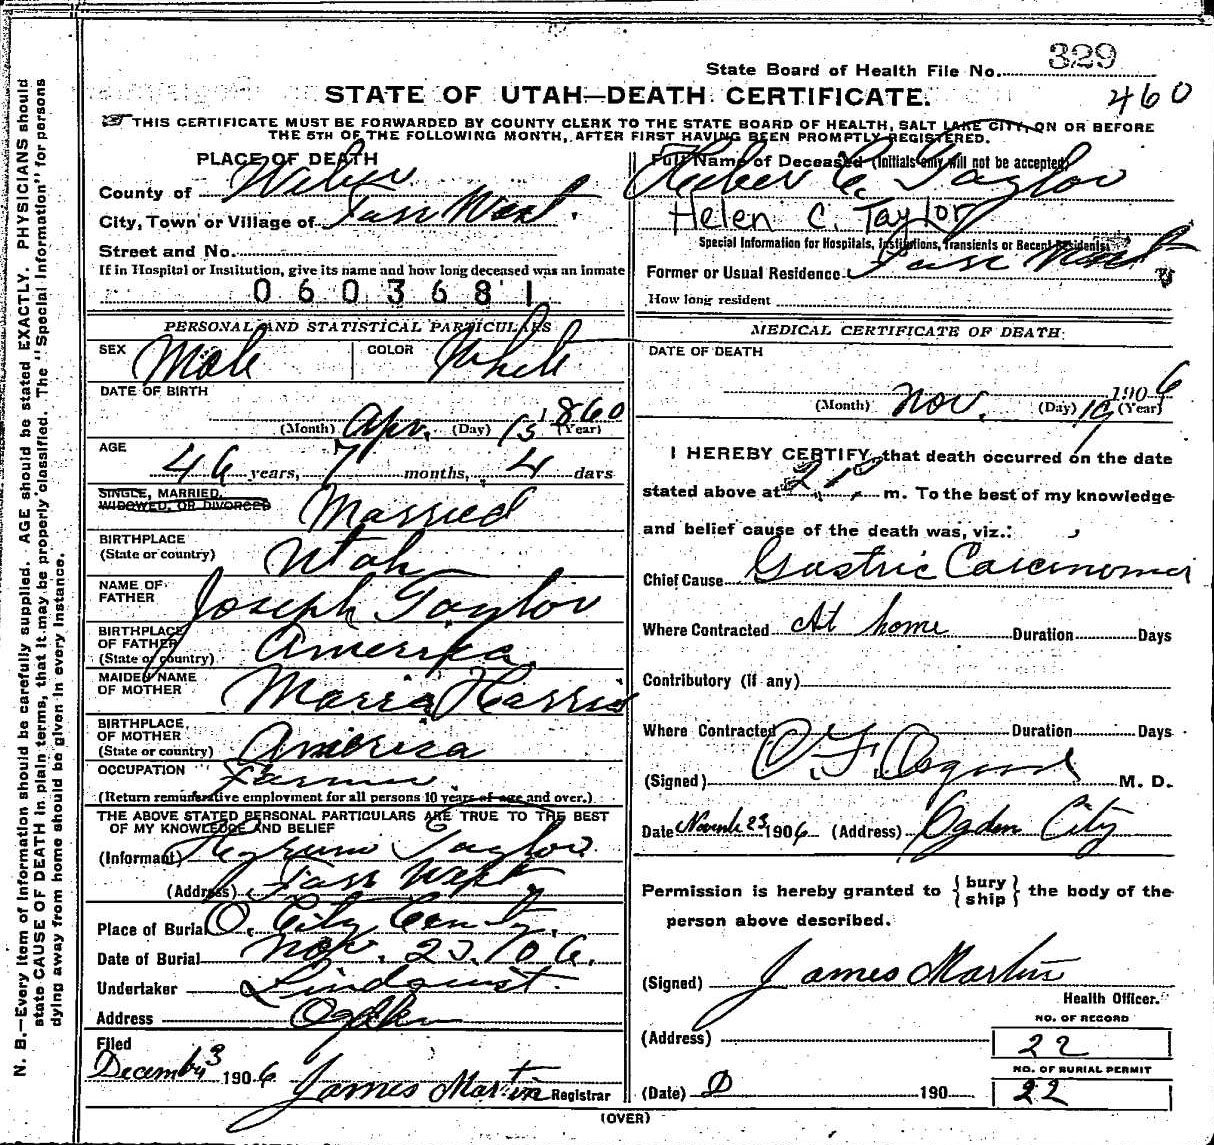 329
State Board of Health File No.
STATE OF UTAH—DEATH CERTIFICATE.
460
THIS CERTIFICATE MUST BE FORWARDED BY COUNTY CLERK TO THE STATE BOARD OF HEALTH, SALT LAKE CITY, ON OR BEFORE
THE 5TH OF THE FOLLOWING MONTH, AFTER FIRST HAVING BEEN PROMPTLY REGISTERED.
N. B.—Every item of information should be carefully supplied. AGE should be stated EXACTLY. PHYSICIANS should
state CAUSE OF DEATH in plain terms, that it may be properly classified. The "Special Information" for persons
dying away from home should be given in every instance.
PLACE OF DEATH
County of Weber
City, Town or Village of Farr West.
Street and No.
If in Hospital or Institution, give its name and how long deceased was an Inmate
0603681
PERSONAL AND STATISTICAL PARTICULARS
SEX Male COLOR White
DATE OF BIRTH
(Month) Apr. (Day) 15 1860 (Year)
AGE
46 years, 7 months, 4 days
SINGLE, MARRIED,
WIDOWED, OR DIVORCED Married
BIRTHPLACE
(State or country) Utah
NAME OF
FATHER Joseph Taylor
BIRTHPLACE
OF FATHER
(State or country) America
MAIDEN NAME
OF MOTHER Maria Harris
BIRTHPLACE
OF MOTHER
(State or country) America
OCCUPATION Farmer
(Return remunerative employment for all persons 10 years of age and over.)
THE ABOVE STATED PERSONAL PARTICULARS ARE TRUE TO THE BEST
OF MY KNOWLEDGE AND BELIEF
(Informant) Taylor
(Address) Farr West
Place of Burial O. City Cem'ty.
Date of Burial Nov. 23. 06.
Undertaker Lindquist.
Address Ogden
Filed
December 3 1906 James Martin Registrar
Full Name of Deceased (Initials only will not be accepted)
Heber C. Taylor
Helen C. Taylor
Special Information for Hospitals, Institutions, Transients or Recent Residents.
Former or Usual Residence Farr West
How long resident
MEDICAL CERTIFICATE OF DEATH
DATE OF DEATH
(Month) Nov. (Day) 19 1906 (Year)
I HEREBY CERTIFY, that death occurred on the date
stated above at m. To the best of my knowledge
and belief cause of the death was, viz.:
Chief Cause Gastric Carcinoma
Where Contracted At home Duration Days
Contributory (if any)
Where Contracted Duration Days
(Signed) M. D.
Date Novemb 23 1906 (Address) Ogden City
Permission is hereby granted to { bury ship } the body of the
person above described.
(Signed) James Martin
Health Officer.
NO. OF RECORD
(Address) 22
NO. OF BURIAL PERMIT
(Date) 190 22
(OVER)